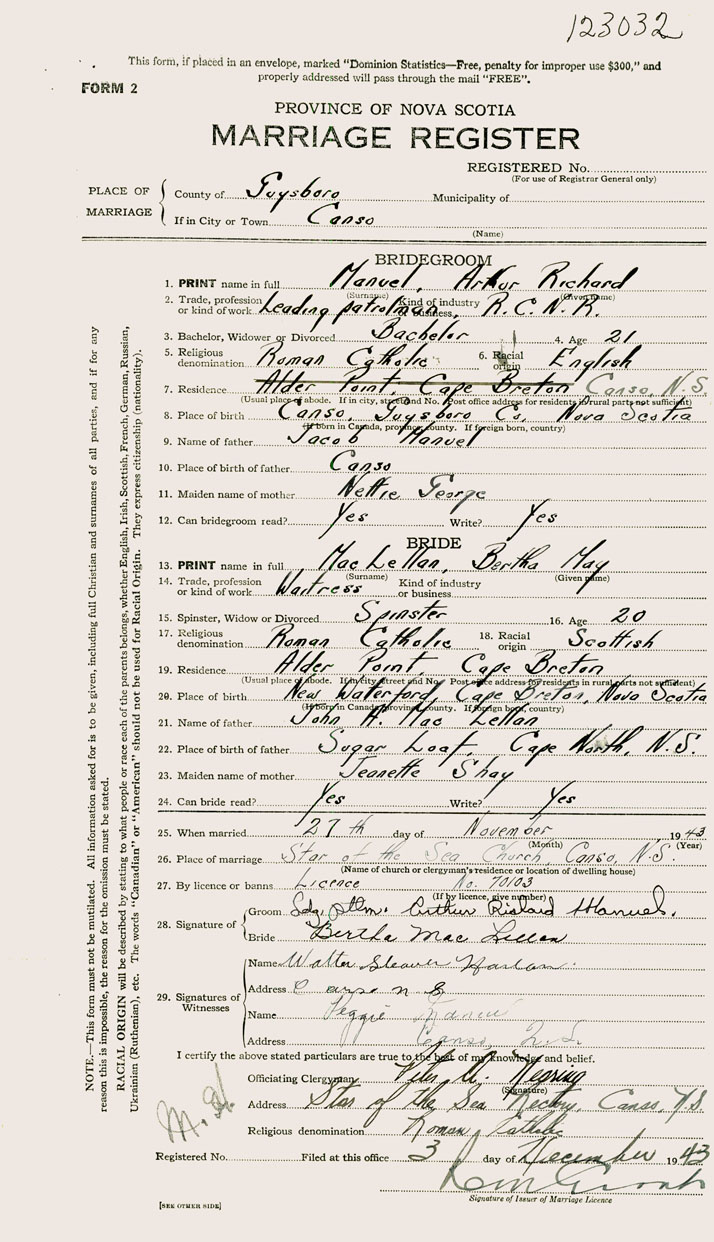 123032
This form, if placed in an envelope, marked "Dominion Statistics—Free, penalty for improper use $300," and
properly addressed will pass through the mail "FREE".
FORM 2
PROVINCE OF NOVA SCOTIA
MARRIAGE REGISTER
REGISTERED No.
(For use of Registrar General only)
PLACE OF MARRIAGE
County of Guysboro Municipality of
If in City or Town Canso
(Name)
BRIDEGROOM
1. PRINT name in full Manuel, Arthur Richard
(Surname) (Given name)
2. Trade, profession or kind of work Leading patrolman, Kind of industry or business R.C.N.R.
3. Bachelor, Widower or Divorced Bachelor 4. Age 21
5. Religious denomination Roman Catholic 6. Racial origin English
7. Residence Alder Point, Cape Breton Canso, N.S.
(Usual place of abode. If in city, street and No. Post office address for residents in rural parts not sufficient)
8. Place of birth Canso, Guysboro Co, Nova Scotia
(If born in Canada, province, county. If foreign born, country)
9. Name of father Jacob Manuel
10. Place of birth of father Canso
11. Maiden name of mother Nettie George
12. Can bridegroom read? Yes Write? Yes
BRIDE
13. PRINT name in full Mac Lellan, Bertha May
(Surname) (Given name)
14. Trade, profession or kind of work Waitress Kind of industry or business
15. Spinster, Widow or Divorced Spinster 16. Age 20
17. Religious denomination Roman Catholic 18. Racial origin Scottish
19. Residence Alder Point, Cape Breton
(Usual place of abode. If in city, street and No. Post office address for residents in rural parts not sufficient)
20. Place of birth New Waterford, Cape Breton, Nova Scotia
(If born in Canada, province, county. If foreign born, country)
21. Name of father John A. Mac Lellan
22. Place of birth of father Sugar Loaf, Cape North, N.S.
23. Maiden name of mother Jeanette Shay
24. Can bride read? Yes Write? Yes
25. When married 27th day of November 1943
(Month) (Year)
26. Place of marriage Star of the Sea Church, Canso, N.S.
(Name of church or clergyman's residence or location of dwelling house)
27. By licence or banns Licence No. 70103
(If by licence, give number)
28. Signature of
Groom Ldg. ptlm. Arthur Richard Manuel.
Bride Bertha Mac Lellan
29. Signatures of Witnesses
Name Walter
Address
Name Peggie
Address Canso, N.S.
I certify the above stated particulars are true to the best of my knowledge and belief.
Officiating Clergyman
(Signature)
Address Star of the Sea Rectory, Canso, N.S.
Religious denomination Roman Catholic
Registered No. Filed at this office 3 day of December 1943
Signature of Issuer of Marriage Licence
[SEE OTHER SIDE]
NOTE.—This form must not be mutilated. All information asked for is to be given, including full Christian and surnames of all parties, and if for any
reason this is impossible, the reason for the omission must be stated.
RACIAL ORIGIN will be described by stating to what people or race each of the parents belongs, whether English, Irish, Scottish, French, German, Russian,
Ukrainian (Ruthenian), etc. The words "Canadian" or "American" should not be used for Racial Origin. They express citizenship (nationality).